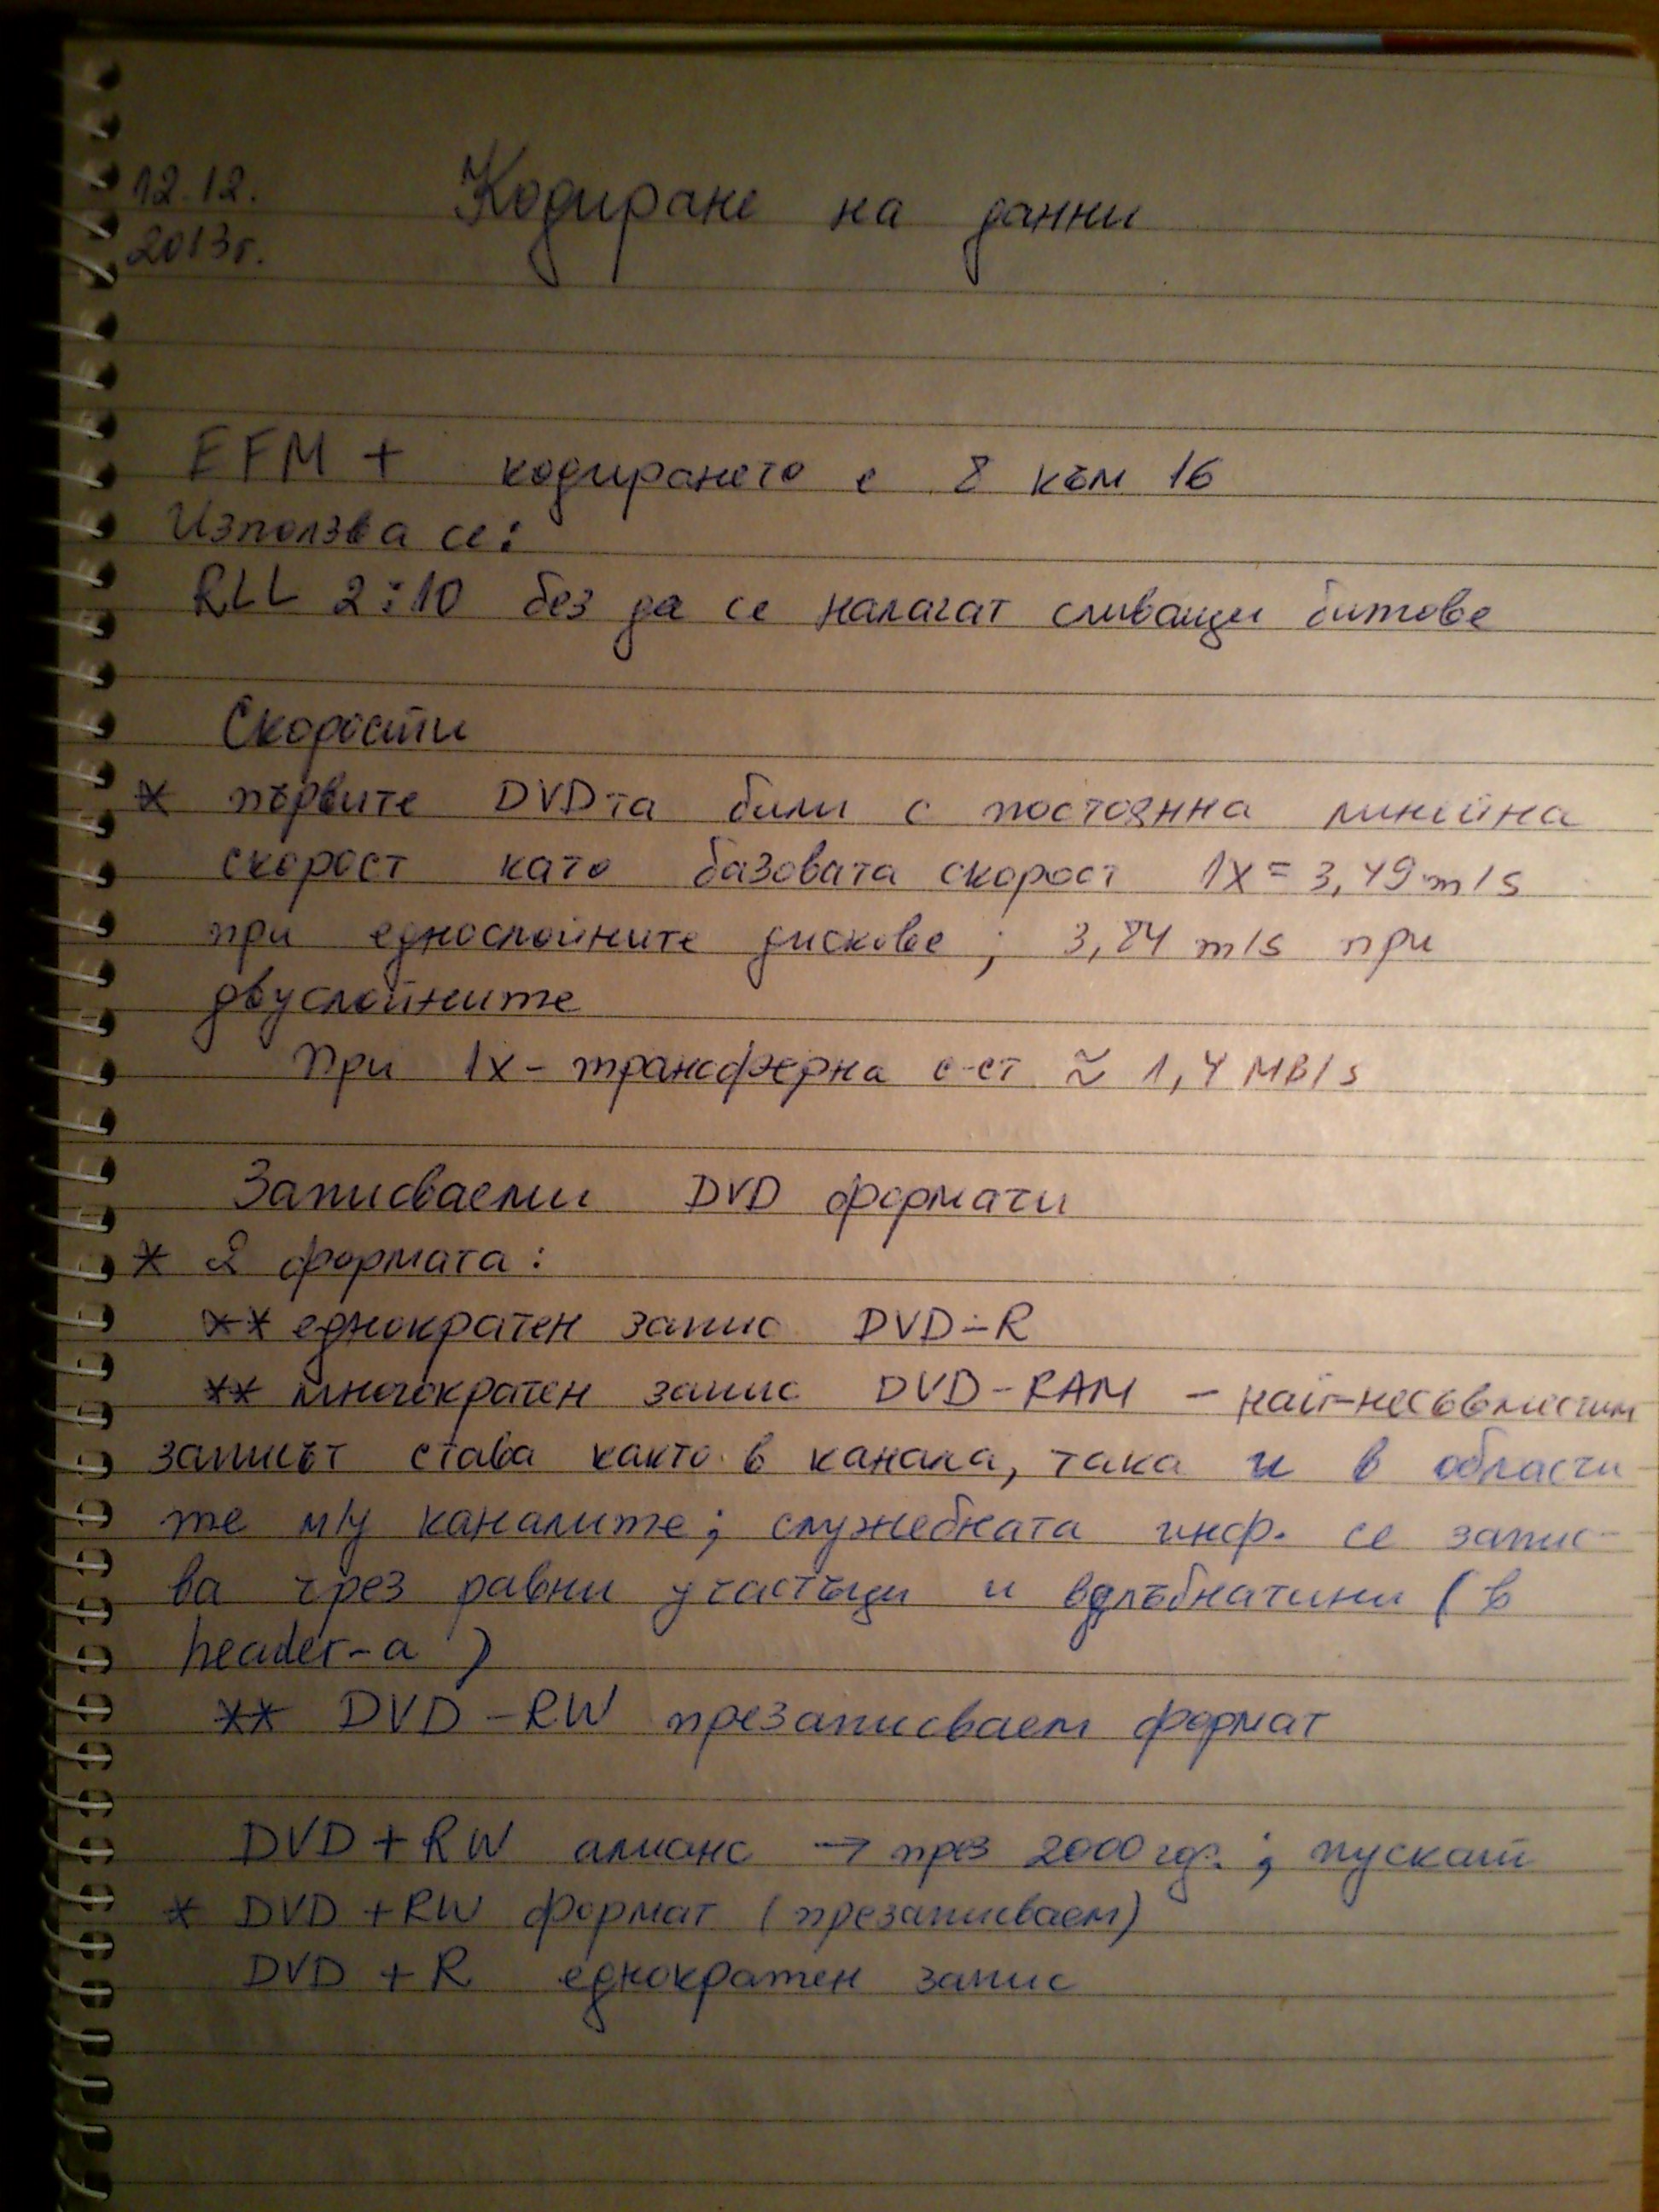 12.12.
2013г.
Кодиране на данни
EFM + кодирането е 8 към 16
Използва се:
RLL 2:10 без да се налагат сливащи битове
Скорости
* първите DVDта били с постоянна линейна
скорост като базовата скорост 1x = 3,49 m/s
при еднослойните дискове ; 3,84 m/s при
двуслойните
При 1x - трансферна с-ст ≈ 1,4 MB/s
Записваеми DVD формати
* 2 формата :
** еднократен запис DVD-R
** многократен запис DVD-RAM - най-несъвместим
записът става както в канала, така и в области
те м/у каналите ; служебната инф. се запис-
ва чрез равни участъци и вдлъбнатини ( в
header-а )
** DVD-RW презаписваем формат
DVD+RW алианс → през 2000 год. ; пускат
* DVD +RW формат ( презаписваем)
DVD + R еднократен запис